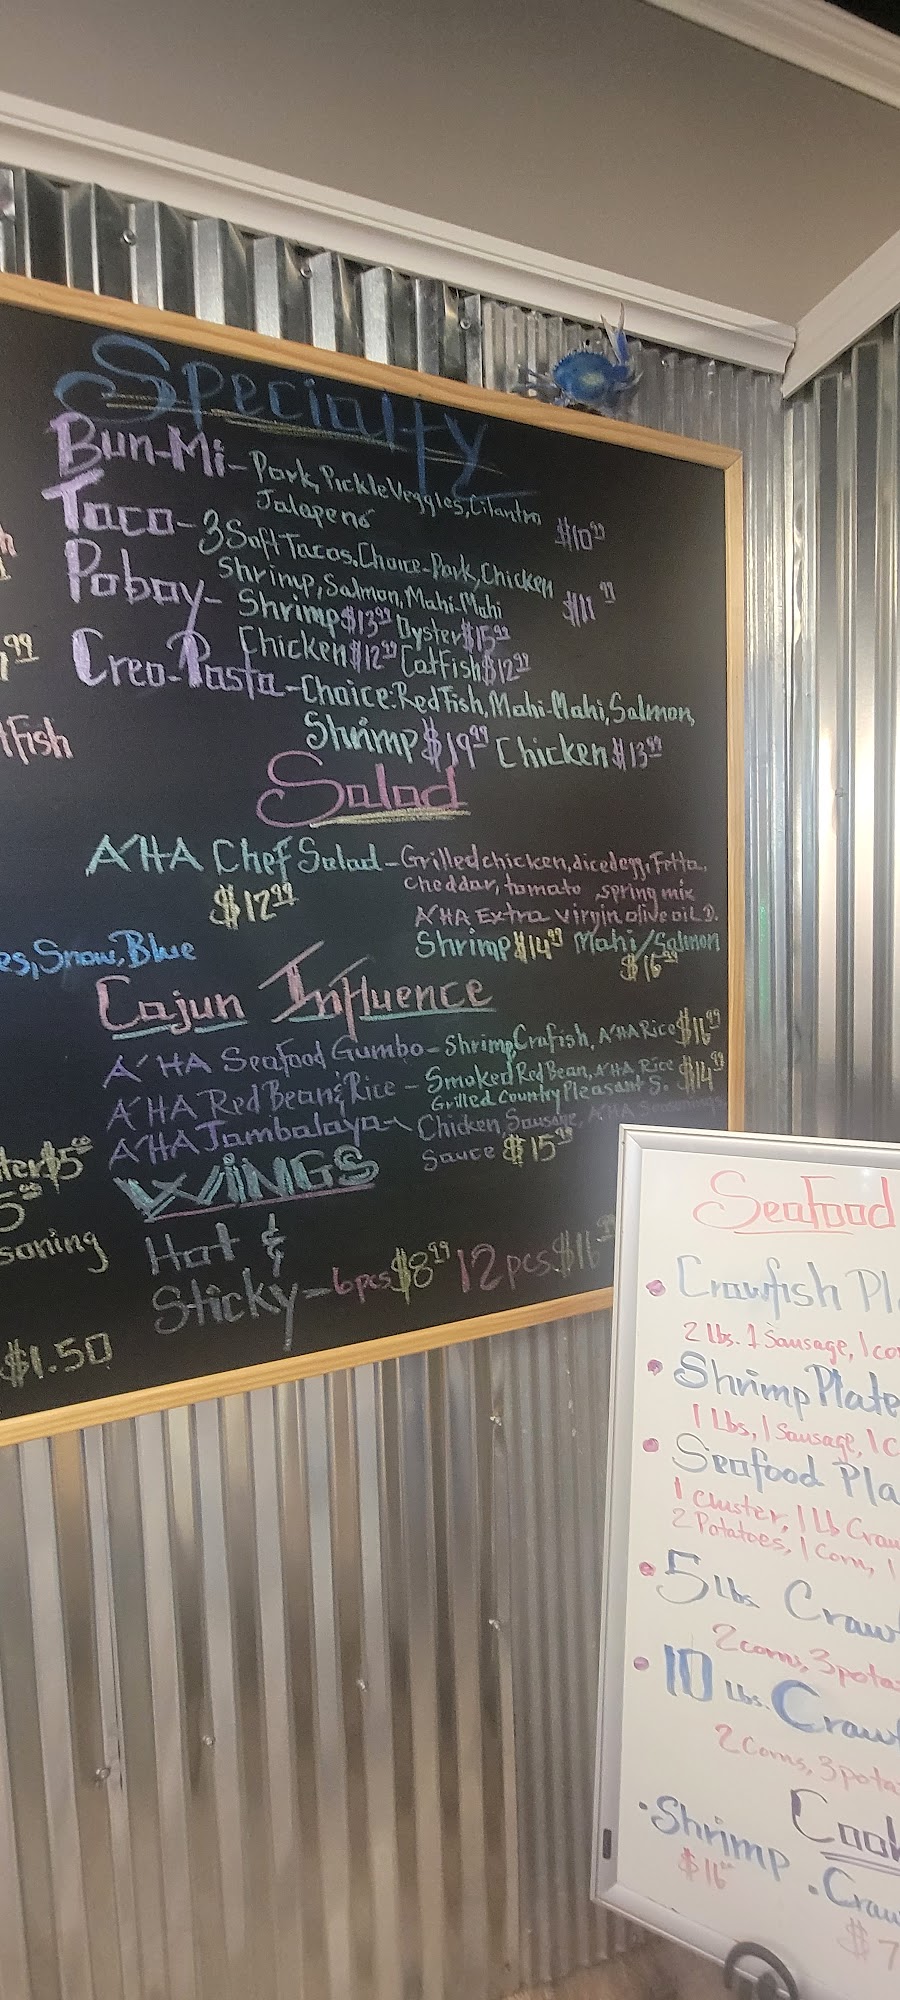 Specialty
Bun-Mi- Pork, Pickle Veggies, Cilantro
Jalapeno $10.99
Taco- 3 Soft Tacos, Choice-Pork, Chicken
Shrimp, Salmon, Mahi-Mahi $11.99
Poboy- Shrimp $13.99 Oyster $15.99
Chicken $12.99 CatFish $12.99
Creo-Pasta- Choice: RedFish, Mahi-Mahi, Salmon,
Shrimp $19.99 Chicken $13.99
Salad
A'HA Chef Salad- Grilled chicken, diced egg, Fetta,
cheddar, tomato spring mix
$12.99
A'HA Extra virgin olive oil D.
Shrimp $14.99 Mahi/Salmon
$16.99
Cajun Influence
A'HA SeaFood Gumbo- Shrimp, Crafish, A'HA Rice $16.99
A'HA Red Bean & Rice - Smoked Red Bean, A'HA Rice $14.99
Grilled Country Pleasant S.
A'HA Jambalaya- Chicken Sausage, A'HA Seasonings
Sauce $15.99
WiNGS
Hot &
Sticky- 6 pcs $8.99 12 pcs $16.99
99
tFish
es, Snow, Blue
ter $5.00
5.00
soning
$1.50
SeaFood
Crawfish Pl
2 lbs. 1 Sausage, 1 co
Shrimp Plate
1 Lbs, 1 Sausage, 1 C
Seafood Pla
1 cluster, 1 Lb Craw
2 Potatoes, 1 Corn, 1
5 Lbs Craw
2 corns, 3 pota
10 Lbs. Craw
2 Corns, 3 pota
Cook
Shrimp
$16
Craw
$7